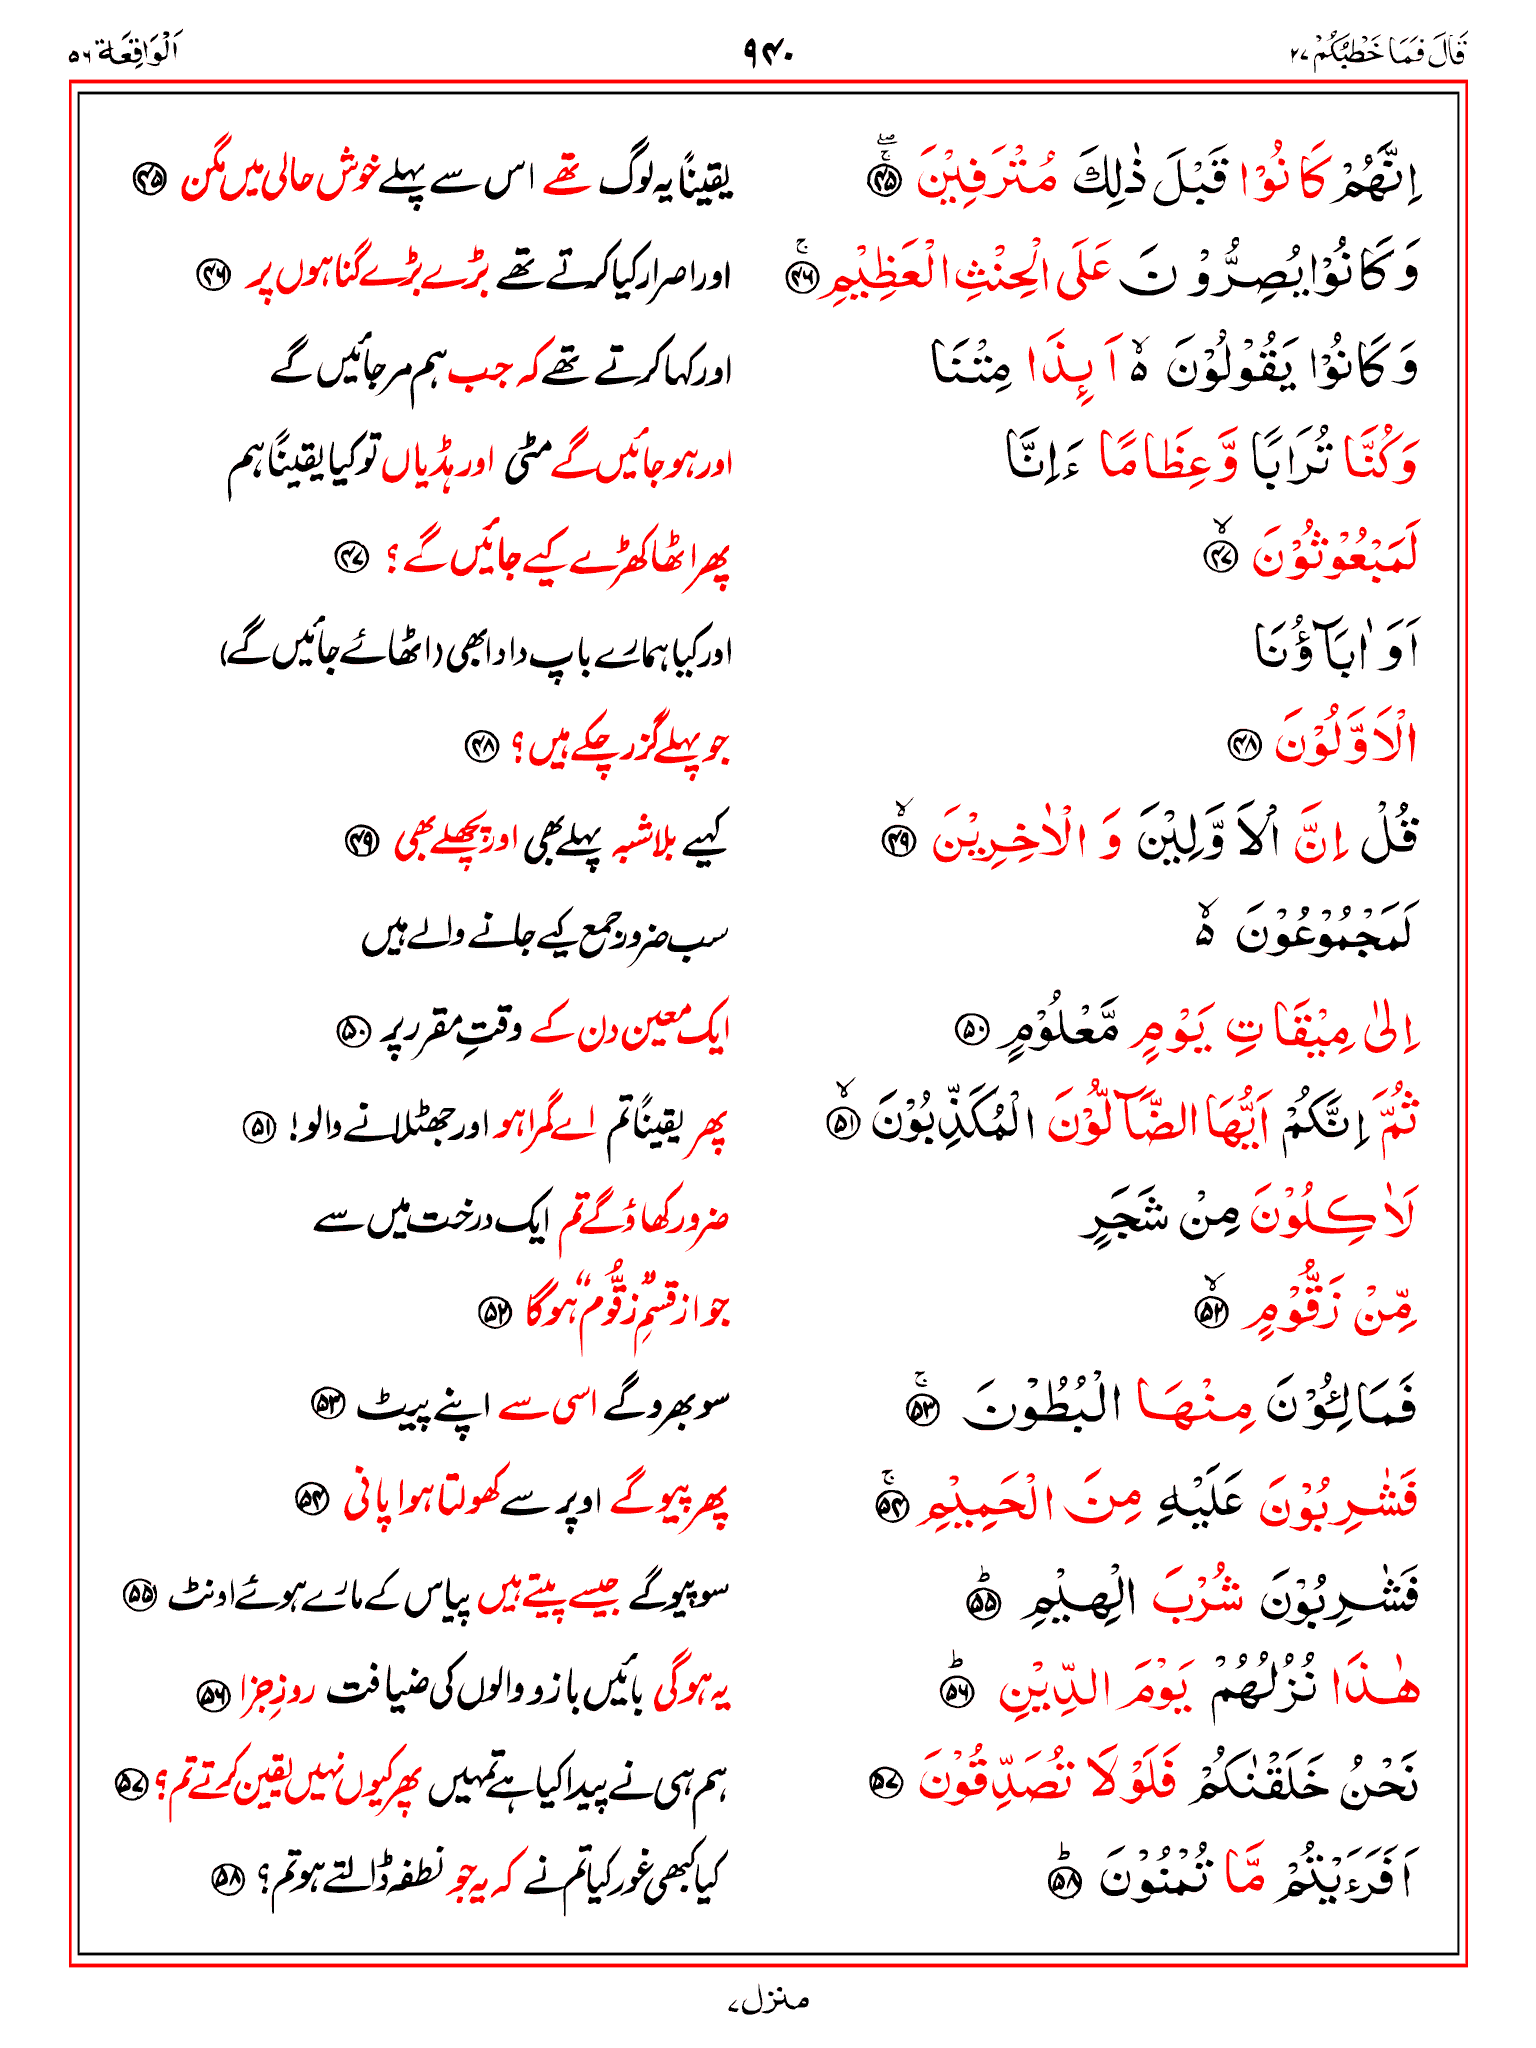 قَالَ فَمَا خَطْبُكُمْ ۲۷ ۹۴۰ اَلْوَاقِعَة ۵۶
اِنَّهُمْ كَانُوْا قَبْلَ ذٰلِكَ مُتْرَفِيْنَ ۚۖ ۴۵ یقیناً یہ لوگ تھے اس سے پہلے خوش حالی میں مگن ۴۵
وَكَانُوْا يُصِرُّوْنَ عَلَى الْحِنْثِ الْعَظِيْمِ ۚ ۴۶ اور اصرار کیا کرتے تھے بڑے بڑے گناہوں پر ۴۶
وَكَانُوْا يَقُوْلُوْنَ ۙ۵ اَىِٕذَا مِتْنَا اور کہا کرتے تھے کہ جب ہم مر جائیں گے
وَكُنَّا تُرَابًا وَّعِظَامًا ءَاِنَّا اور ہو جائیں گے مٹی اور ہڈیاں تو کیا یقیناً ہم
لَمَبْعُوْثُوْنَ ۙ ۴۷ پھر اٹھا کھڑے کیے جائیں گے؟ ۴۷
اَوَ اٰبَآؤُنَا اور کیا ہمارے باپ دادا بھی (اٹھائے جائیں گے)
الْاَوَّلُوْنَ ۴۸ جو پہلے گزر چکے ہیں؟ ۴۸
قُلْ اِنَّ الْاَوَّلِيْنَ وَ الْاٰخِرِيْنَ ۙ ۴۹ کہیے بلاشبہ پہلے بھی اور پچھلے بھی ۴۹
لَمَجْمُوْعُوْنَ ۙ۵ سب ضرور جمع کیے جانے والے ہیں
اِلٰى مِيْقَاتِ يَوْمٍ مَّعْلُوْمٍ ۵۰ ایک معین دن کے وقتِ مقرر پر ۵۰
ثُمَّ اِنَّكُمْ اَيُّهَا الضَّآلُّوْنَ الْمُكَذِّبُوْنَ ۙ ۵۱ پھر یقیناً تم اے گمراہو اور جھٹلانے والو! ۵۱
لَاٰكِلُوْنَ مِنْ شَجَرٍ ضرور کھاؤ گے تم ایک درخت میں سے
مِّنْ زَقُّوْمٍ ۙ ۵۲ جو از قسمِ ”زقُّوم“ ہوگا ۵۲
فَمَالِـُٔوْنَ مِنْهَا الْبُطُوْنَ ۚ ۵۳ سو بھرو گے اسی سے اپنے پیٹ ۵۳
فَشٰرِبُوْنَ عَلَيْهِ مِنَ الْحَمِيْمِ ۚ ۵۴ پھر پیو گے اوپر سے کھولتا ہوا پانی ۵۴
فَشٰرِبُوْنَ شُرْبَ الْهِيْمِ ؕ ۵۵ سو پیو گے جیسے پیتے ہیں پیاس کے مارے ہوئے اونٹ ۵۵
هٰذَا نُزُلُهُمْ يَوْمَ الدِّيْنِ ؕ ۵۶ یہ ہوگی بائیں بازو والوں کی ضیافت روزِ جزا ۵۶
نَحْنُ خَلَقْنٰكُمْ فَلَوْلَا تُصَدِّقُوْنَ ۵۷ ہم ہی نے پیدا کیا ہے تمہیں پھر کیوں نہیں یقین کرتے تم؟ ۵۷
اَفَرَءَيْتُمْ مَّا تُمْنُوْنَ ؕ ۵۸ کیا کبھی غور کیا تم نے کہ یہ جو نطفہ ڈالتے ہو تم؟ ۵۸
منزل ۷